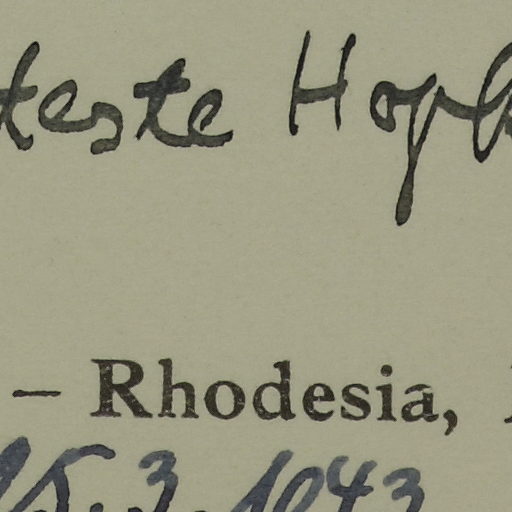 teste Hopk
– Rhodesia,
15.3.1943